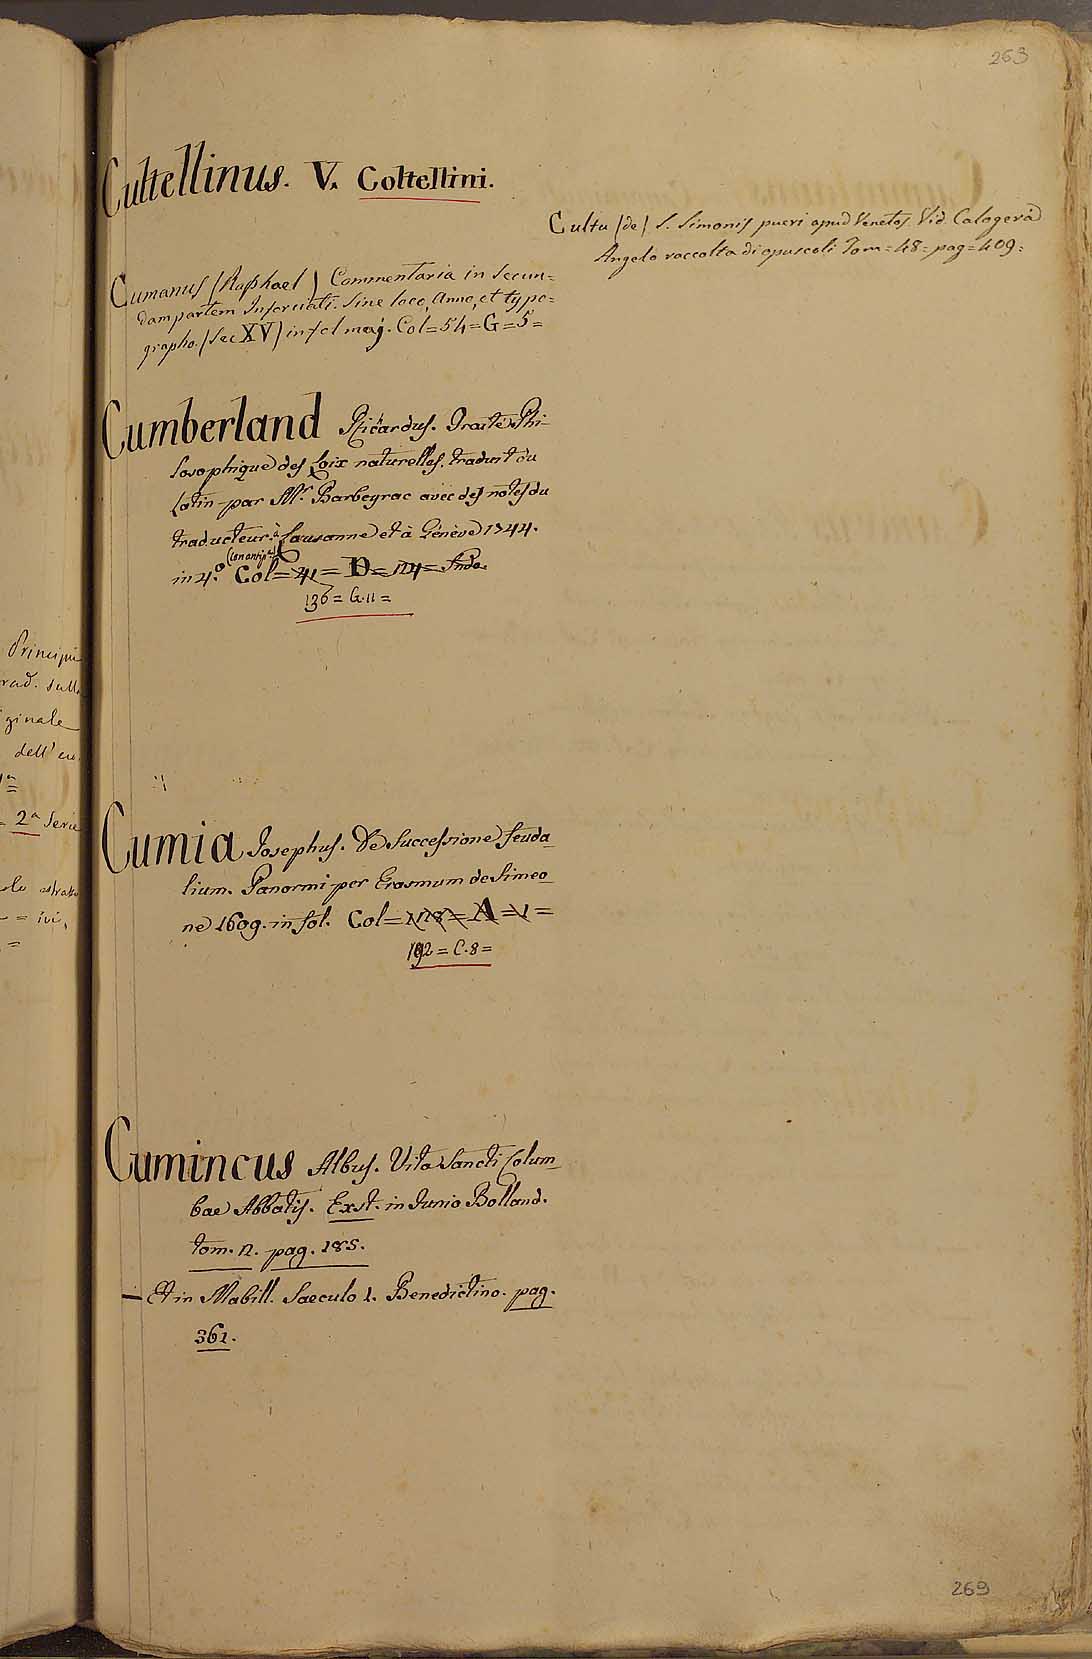 263
Cultellinus. V. Coltellini.
Cultu (de) S. Simonis pueri apud Venetos. Vid. Calogerà
Angelo raccolta di opuscoli Tom = 48 = pag = 409 =
Cumanus (Raphael) Commentaria in Secun=
dam partem Inforciati. Sine loco, Anno, et typo=
grapho. (Sec XV) in fol maj. Col = 54 = G = 5 =
Cumberland Richardus. Traité Phi-
losophique des Loix naturelles, traduit du
Latin par Mr. Barbeyrac avec des notes du
traducteur. à Lausanne et à Génève 1744.
in 4.° Col = 41 = D =
136 = G. 11 =
Cumia Josephus. De Successione feuda_
lium. Panormi per Erasmum de Simeo_
ne 1609. in fol. Col = = A = 1 =
192 = C. 8 =
Cumincus Albus. Vita Sancti Colum_
bae Abbatis. Exst. in Junio Bolland.
tom. 2. pag. 185.
— Et in Mabill. Saeculo 1. Benedictino. pag.
361.
269
Principii
rad. sull
ginale
dell'
= 2a Serie
= ivi,
=